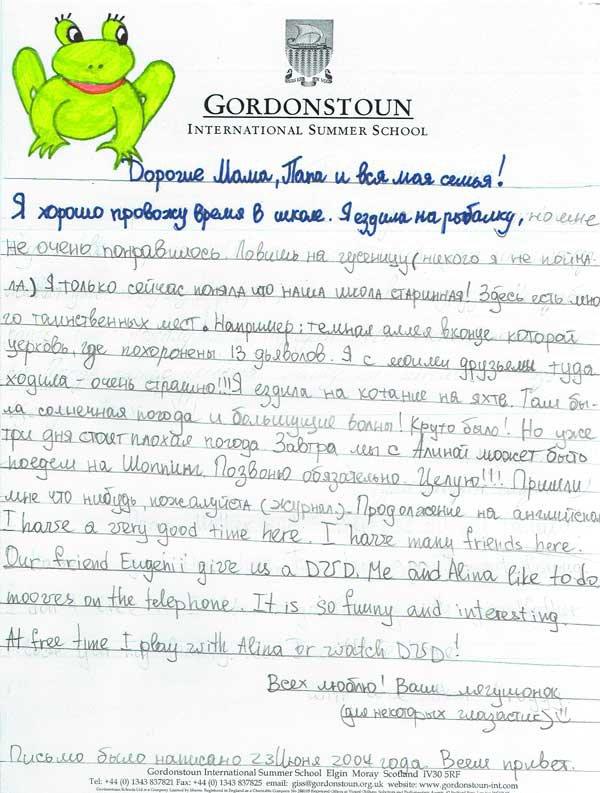 GORDONSTOUN
INTERNATIONAL SUMMER SCHOOL
Дорогие Мама, Папа и вся моя семья!
Я хорошо провожу время в школе. Я ездила на рыбалку, но мне
не очень понравилось. Ловишь на гусеницу (никого я не пойма-
ла.) Я только сейчас поняла что наша школа старинная! Здесь есть мно
го таинственных мест. Например: темная аллея вконце которой
церковь, где похоронены 13 дьяволов. Я с моими друзьями туда
ходила - очень страшно!!! Я ездила на котание на яхте. Там бы-
ла солнечная погода и большущие волны! Круто было! Но уже
три дня стоит плохая погода Завтра мы с Алиной может быть
поедем на Шоппинг. Позвоню обязательно. Целую!!! Пришли
мне что нибудь, пожалуйста (журнал). Продолжение на английском
I harse a very good time here. I harse many friends here.
Our friend Eugenii give us a DVD. Me and Alina like to do
mooves on the telephone. It is so funny and interesting.
At free time I play with Alina or watch DVD!
Всех люблю! Ваш лягушонок
(для некоторых глазастик)
Письмо было написано 23 Июня 2004 года. Всем привет.
Gordonstoun International Summer School Elgin Moray Scotland IV30 5RF
Tel: +44 (0) 1343 837821 Fax: +44 (0) 1343 837825 email: giss@gordonstoun.org.uk website: www.gordonstoun-int.com